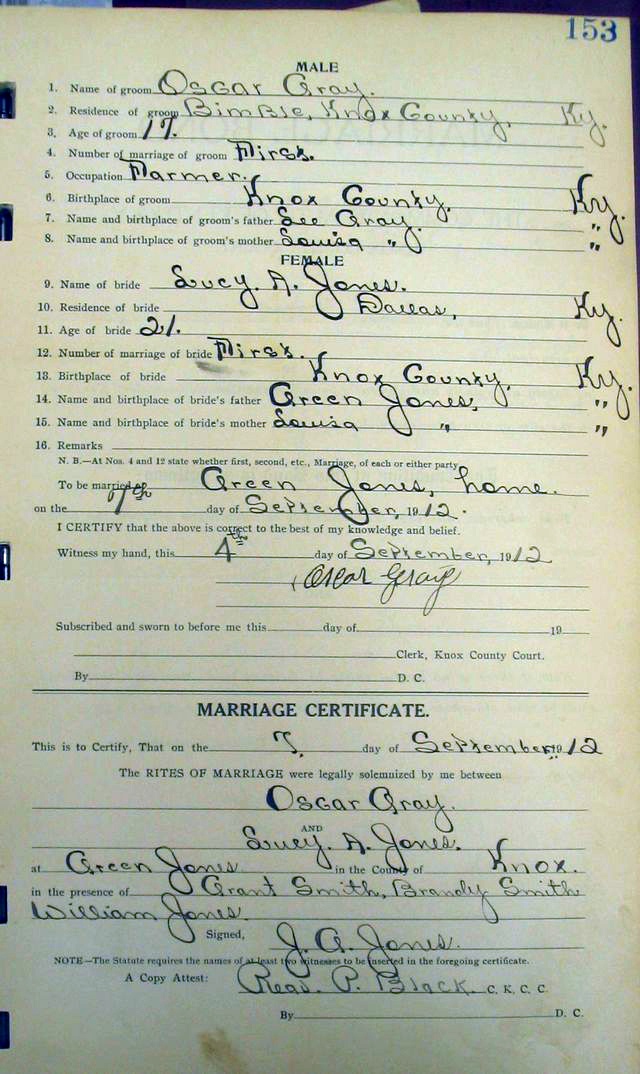 153
MALE
1. Name of groom Oscar Gray.
2. Residence of groom Bimble, Knox County, Ky.
3. Age of groom 17.
4. Number of marriage of groom First.
5. Occupation Farmer.
6. Birthplace of groom Knox County. Ky.
7. Name and birthplace of groom's father Lee Gray. "
8. Name and birthplace of groom's mother Louisa " "
FEMALE
9. Name of bride Lucy. A. Jones.
10. Residence of bride Dallas, Ky.
11. Age of bride 21.
12. Number of marriage of bride First.
13. Birthplace of bride Knox County. Ky.
14. Name and birthplace of bride's father Green Jones, "
15. Name and birthplace of bride's mother Louisa " "
16. Remarks
N. B.—At Nos. 4 and 12 state whether first, second, etc., Marriage, of each or either party
To be married at Green Jones, home.
on the 7th day of September, 1912.
I CERTIFY that the above is correct to the best of my knowledge and belief.
Witness my hand, this 4th day of September, 1912
Oscar Gray
Subscribed and sworn to before me this day of 19
Clerk, Knox County Court.
By D. C.
MARRIAGE CERTIFICATE.
This is to Certify, That on the 7. day of September, 1912
The RITES OF MARRIAGE were legally solemnized by me between
Oscar Gray.
AND
Lucy. A. Jones.
at Green Jones in the County of Knox.
in the presence of Grant Smith, Brandy Smith
William Jones.
Signed, J. G. Jones.
NOTE—The Statute requires the names of at least two witnesses to be inserted in the foregoing certificate.
A Copy Attest: P. Black C. K. C. C.
By D. C.